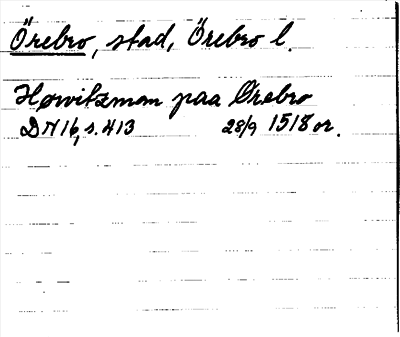 Örebro, stad, Örebro l.
Høvitzman paa Ørebro
DN 16, s. 413 28/9 1518 or.